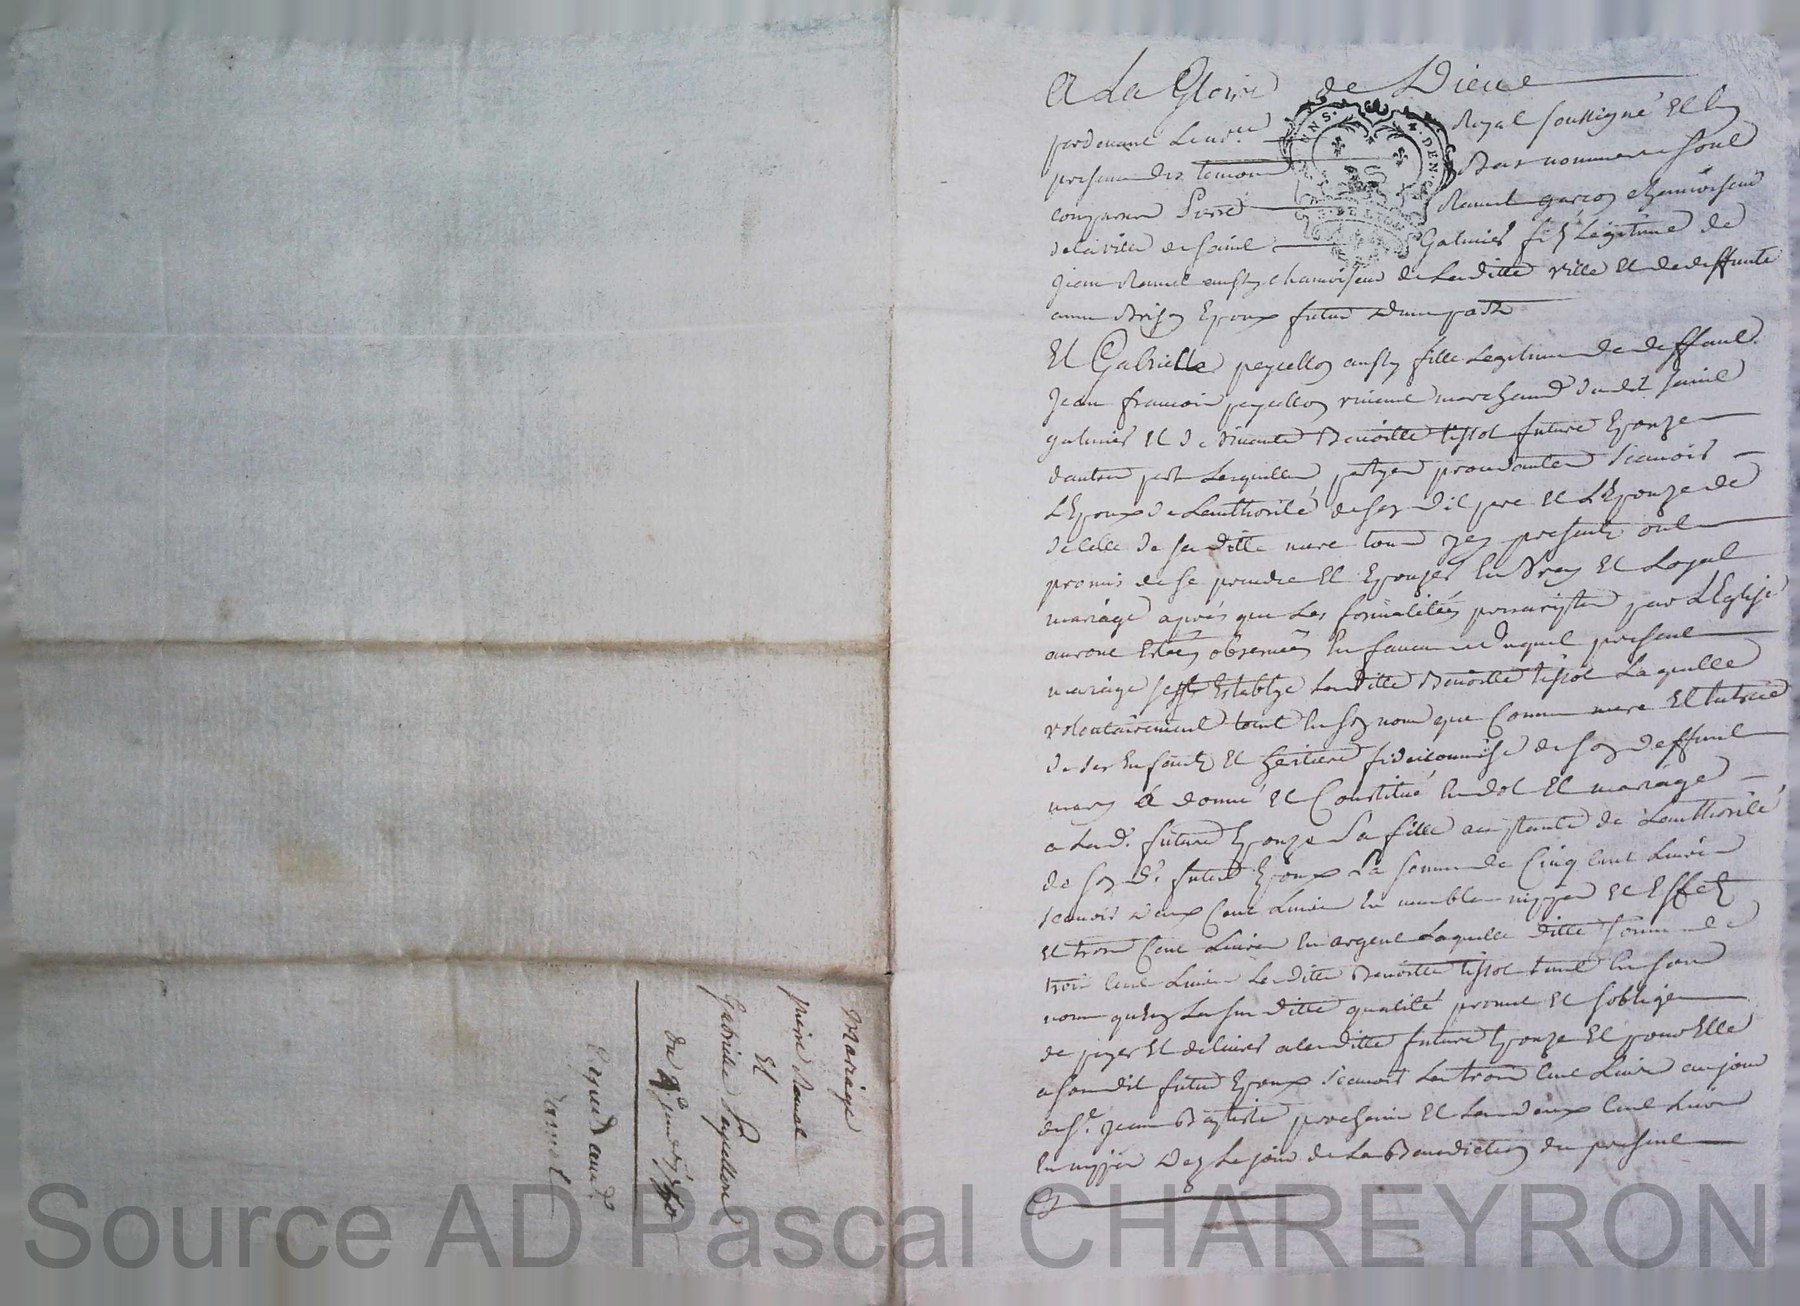 Mariage
pierre Ravel
Et
Gabrielle Peycellon
du
A La Gloire de Dieue
pardevant Royal soussigné Et En
presence des temoins Bas nommes
comparu Pierre Ravel garçon chamoiseur
de la ville de saint Galmier fils Legitime de
Jean Ravel aussy chamoiseur de Laditte ville Et de deffunte
anne Epoux futur d'une part
Et Gabrielle peycellon aussy fille Legitime de deffunt
Jean francois peycellon vivant marchand dudt saint
galmier Et de vivante Benoitte tissot future Epouze
d'autre part Lesquelles partyes procedantes scavoir
L'Epoux de Lauthorité de son dit pere Et L'Epouze de
de celle de sa ditte mere tous presents ont
promis de se prendre Et Epouzer En vray Et Loyal
mariage aprés que Les formalitées par L'Eglize
auront Estées observées En faveur duquel present
mariage sest Establye Laditte Benoitte tissot Laquelle
volontairement tant En son nom que Comme mere Et tutrice
de ses Enfants Et heritiere fideicommise de son deffunt
mary a donné Et Constitué En dot Et mariage
a Lad. future Epouze sa fille de Lauthorité
de son d. futur Epoux La somme de Cinq Cent Livres
scavoir deux Cent Livres En meubles nippes Et Effets
Et trois Cent Livres En argent Laquelle ditte somme de
trois Cent Livres Laditte Benoitte tissot tant En son
nom quen La susditte qualité promet Et soblige
de payer Et delivrer a laditte future Epouze Et pour Elle
a son dit futur Epoux scavoir Les trois Cent Livres au jour
de St. Jean Baptiste prochain Et Les deux Cent Livres
En nippes dez Le jour de La Benediction du present
Source AD Pascal CHAREYRON